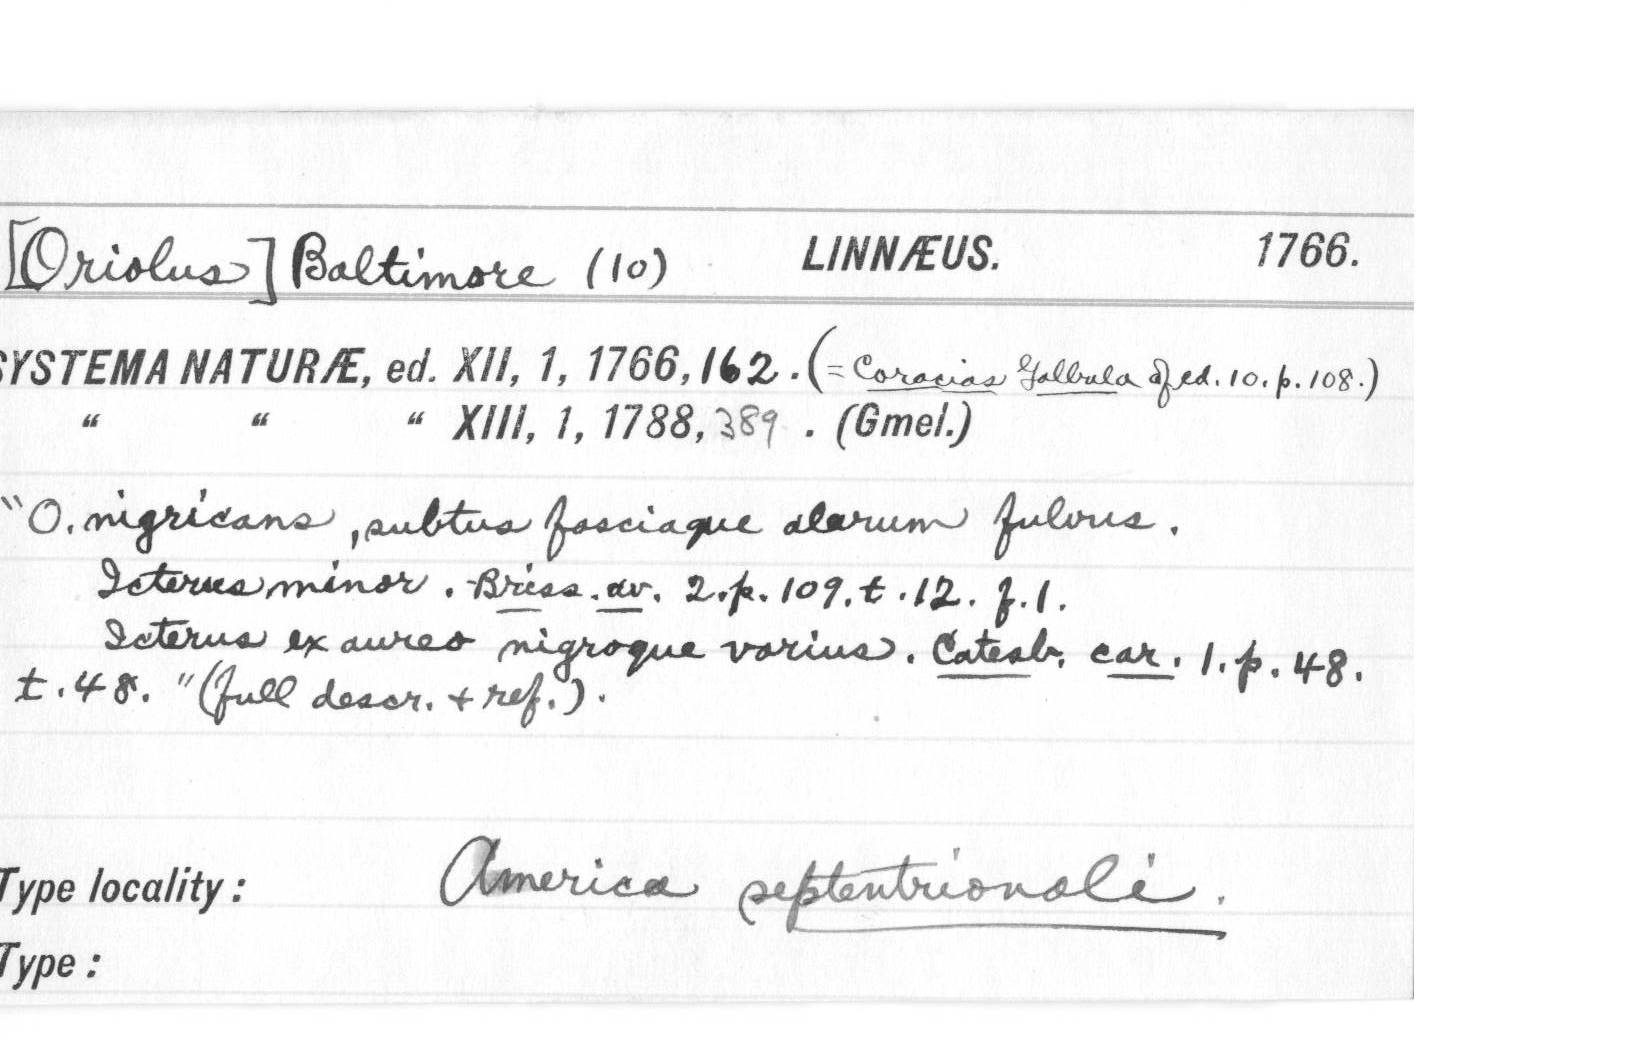 [Oriolus] Baltimore (10) LINNÆUS. 1766.
SYSTEMA NATURÆ, ed. XII, 1, 1766, 162. (= Coracias Galbula of ed. 10. p. 108.)
“ “ “ XIII, 1, 1788, 389. (Gmel.)
"O. nigricans, subtus fasciaque alarum fulvus.
Icterus minor. Briss. av. 2. p. 109. t. 12. f. 1.
Icterus ex aureo nigroque varius. Catesb. car. 1. p. 48.
t. 48." (full descr. + ref.).
Type locality: America septentrionali.
Type: